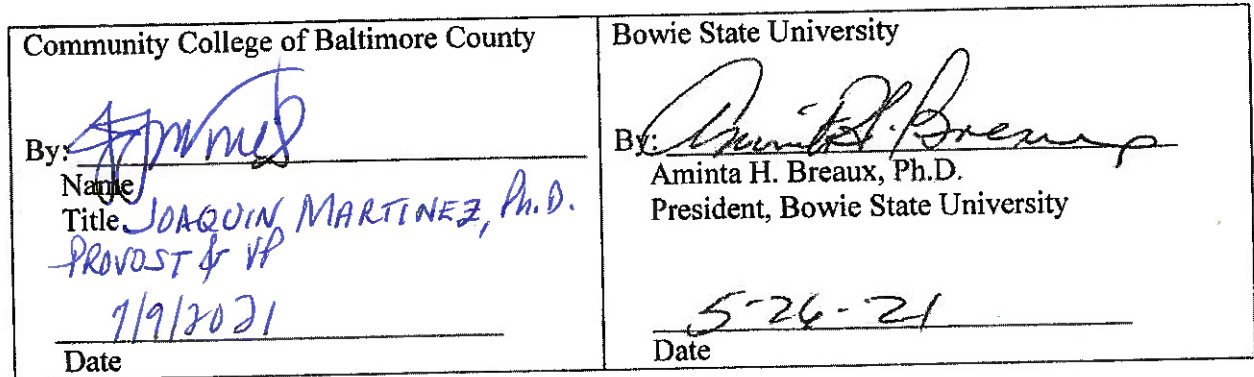 Community College of Baltimore County
By:
Name
Title JOAQUIN MARTINEZ, Ph.D.
PROVOST & VP
7/9/2021
Date
Bowie State University
By: Aminta H. Breaux
Aminta H. Breaux, Ph.D.
President, Bowie State University
5-26-21
Date